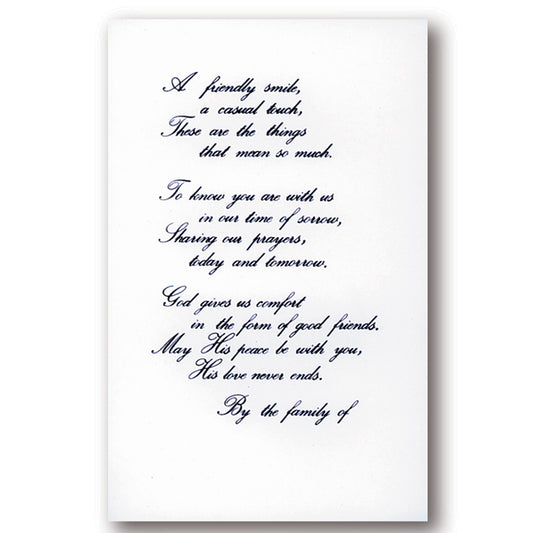 A friendly smile,
a casual touch,
These are the things
that mean so much.
To know you are with us
in our time of sorrow,
Sharing our prayers,
today and tomorrow.
God gives us comfort
in the form of good friends.
May His peace be with you,
His love never ends.
By the family of